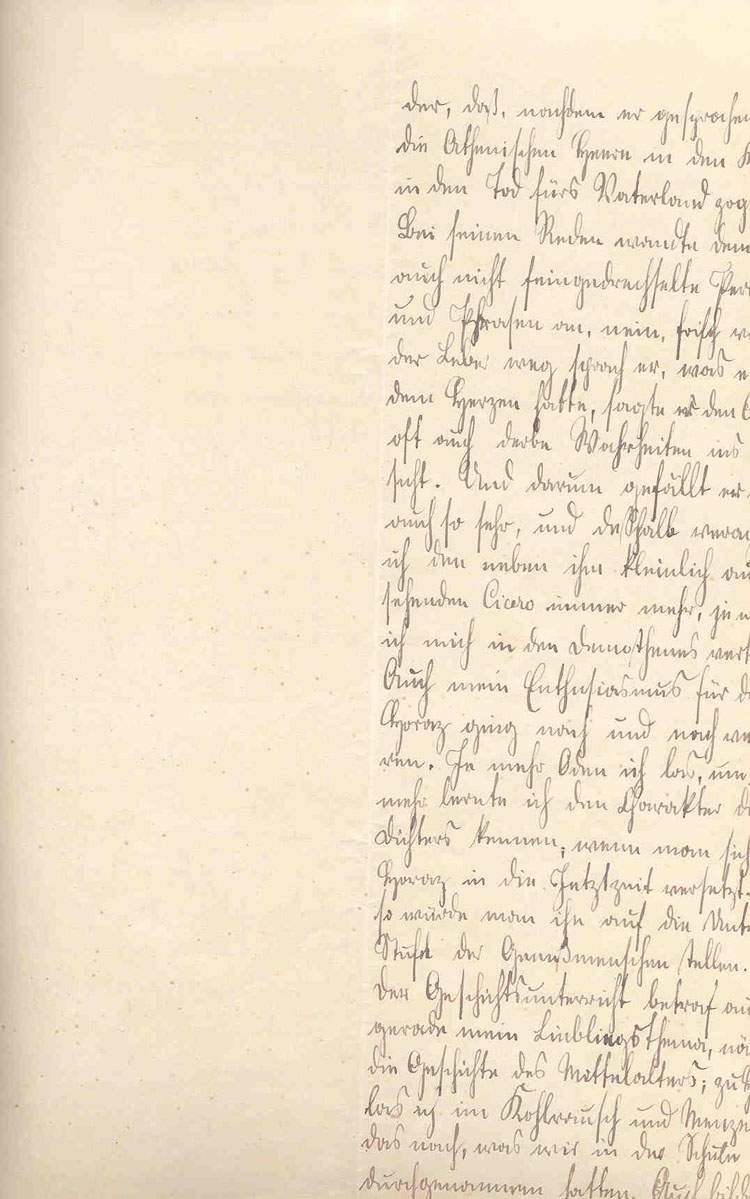 der, daß, nachdem er gesprochen
die Athenischen Heere in den K
in den Tod fürs Vaterland zog
Bei seinen Reden wandte Dem
auch nicht feingedrechselte Per
und Phrasen an, nein, frisch v
der Leber weg sprach er, was e
dem Herzen hatte, sagte es den
oft auch derbe Wahrheiten ins
sicht. Und darum gefällt er
auch so sehr, und deßhalb verac
ich den neben ihm kleinlich au
sehenden Cicero immer mehr, je
ich mich in den Demosthenes vert
Auch mein Enthusiasmus für d
Horaz ging nach und nach ve
ren. Je mehr Oden ich las, um
mehr lernte ich den Charakter d
Dichters kennen; wenn man sich
Horaz in die Jetztzeit versetzt
so würde man ihn auf die Unte
Stufe der Genußmenschen stellen.
Der Geschichtsunterricht betraf au
gerade mein Lieblingsthema, nä
die Geschichte des Mittelalters; zu
las ich im Kohlrausch und Menze
das nach, was wir in der Schule
durchgenommen hatten. Auch bild